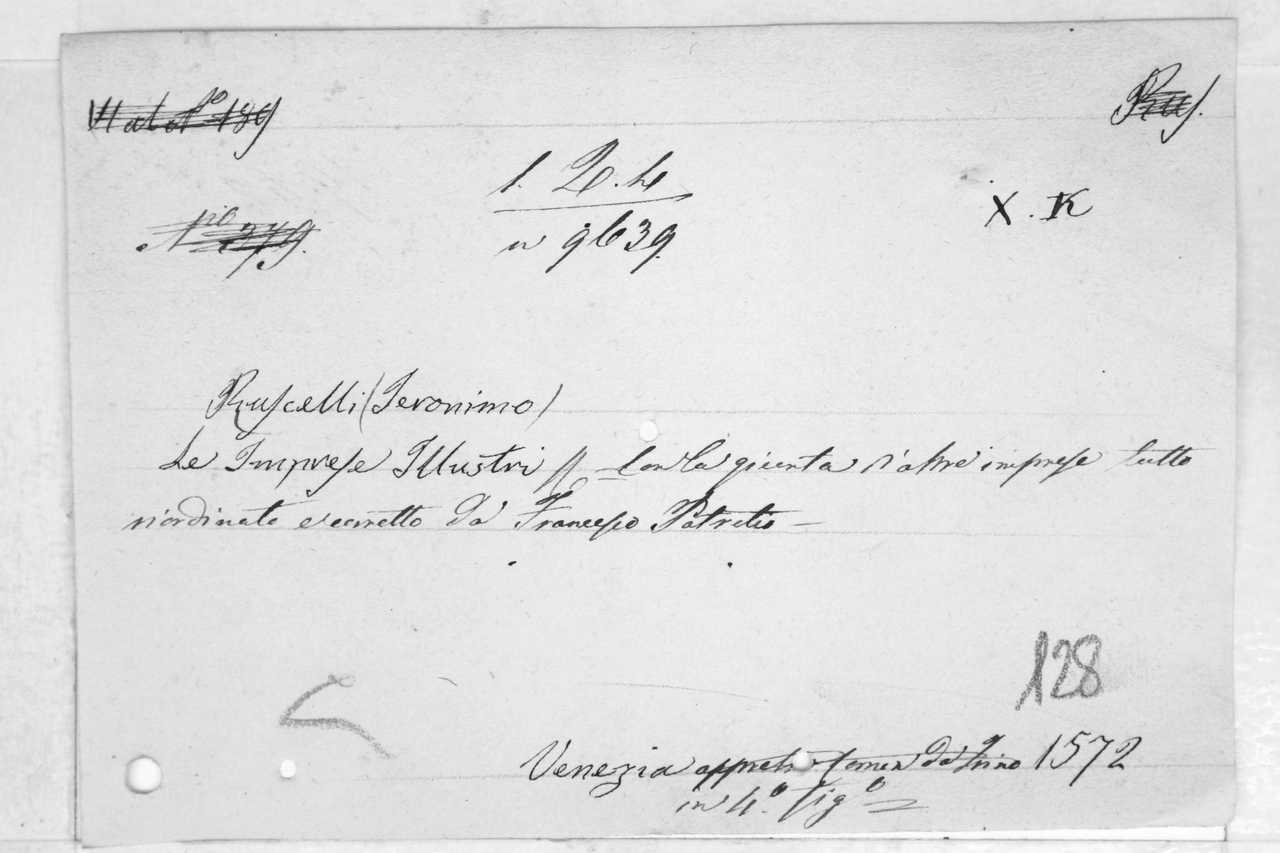 Rus.
X. K
n 9639.
Ruscelli (Jeronimo)
Le Imprese Illustri // Con la giunta d'altre imprese tutto
riordinato e corretto da Francesco Patritio
128
Venezia appresso Comin da Trino 1572
in 4.º figº